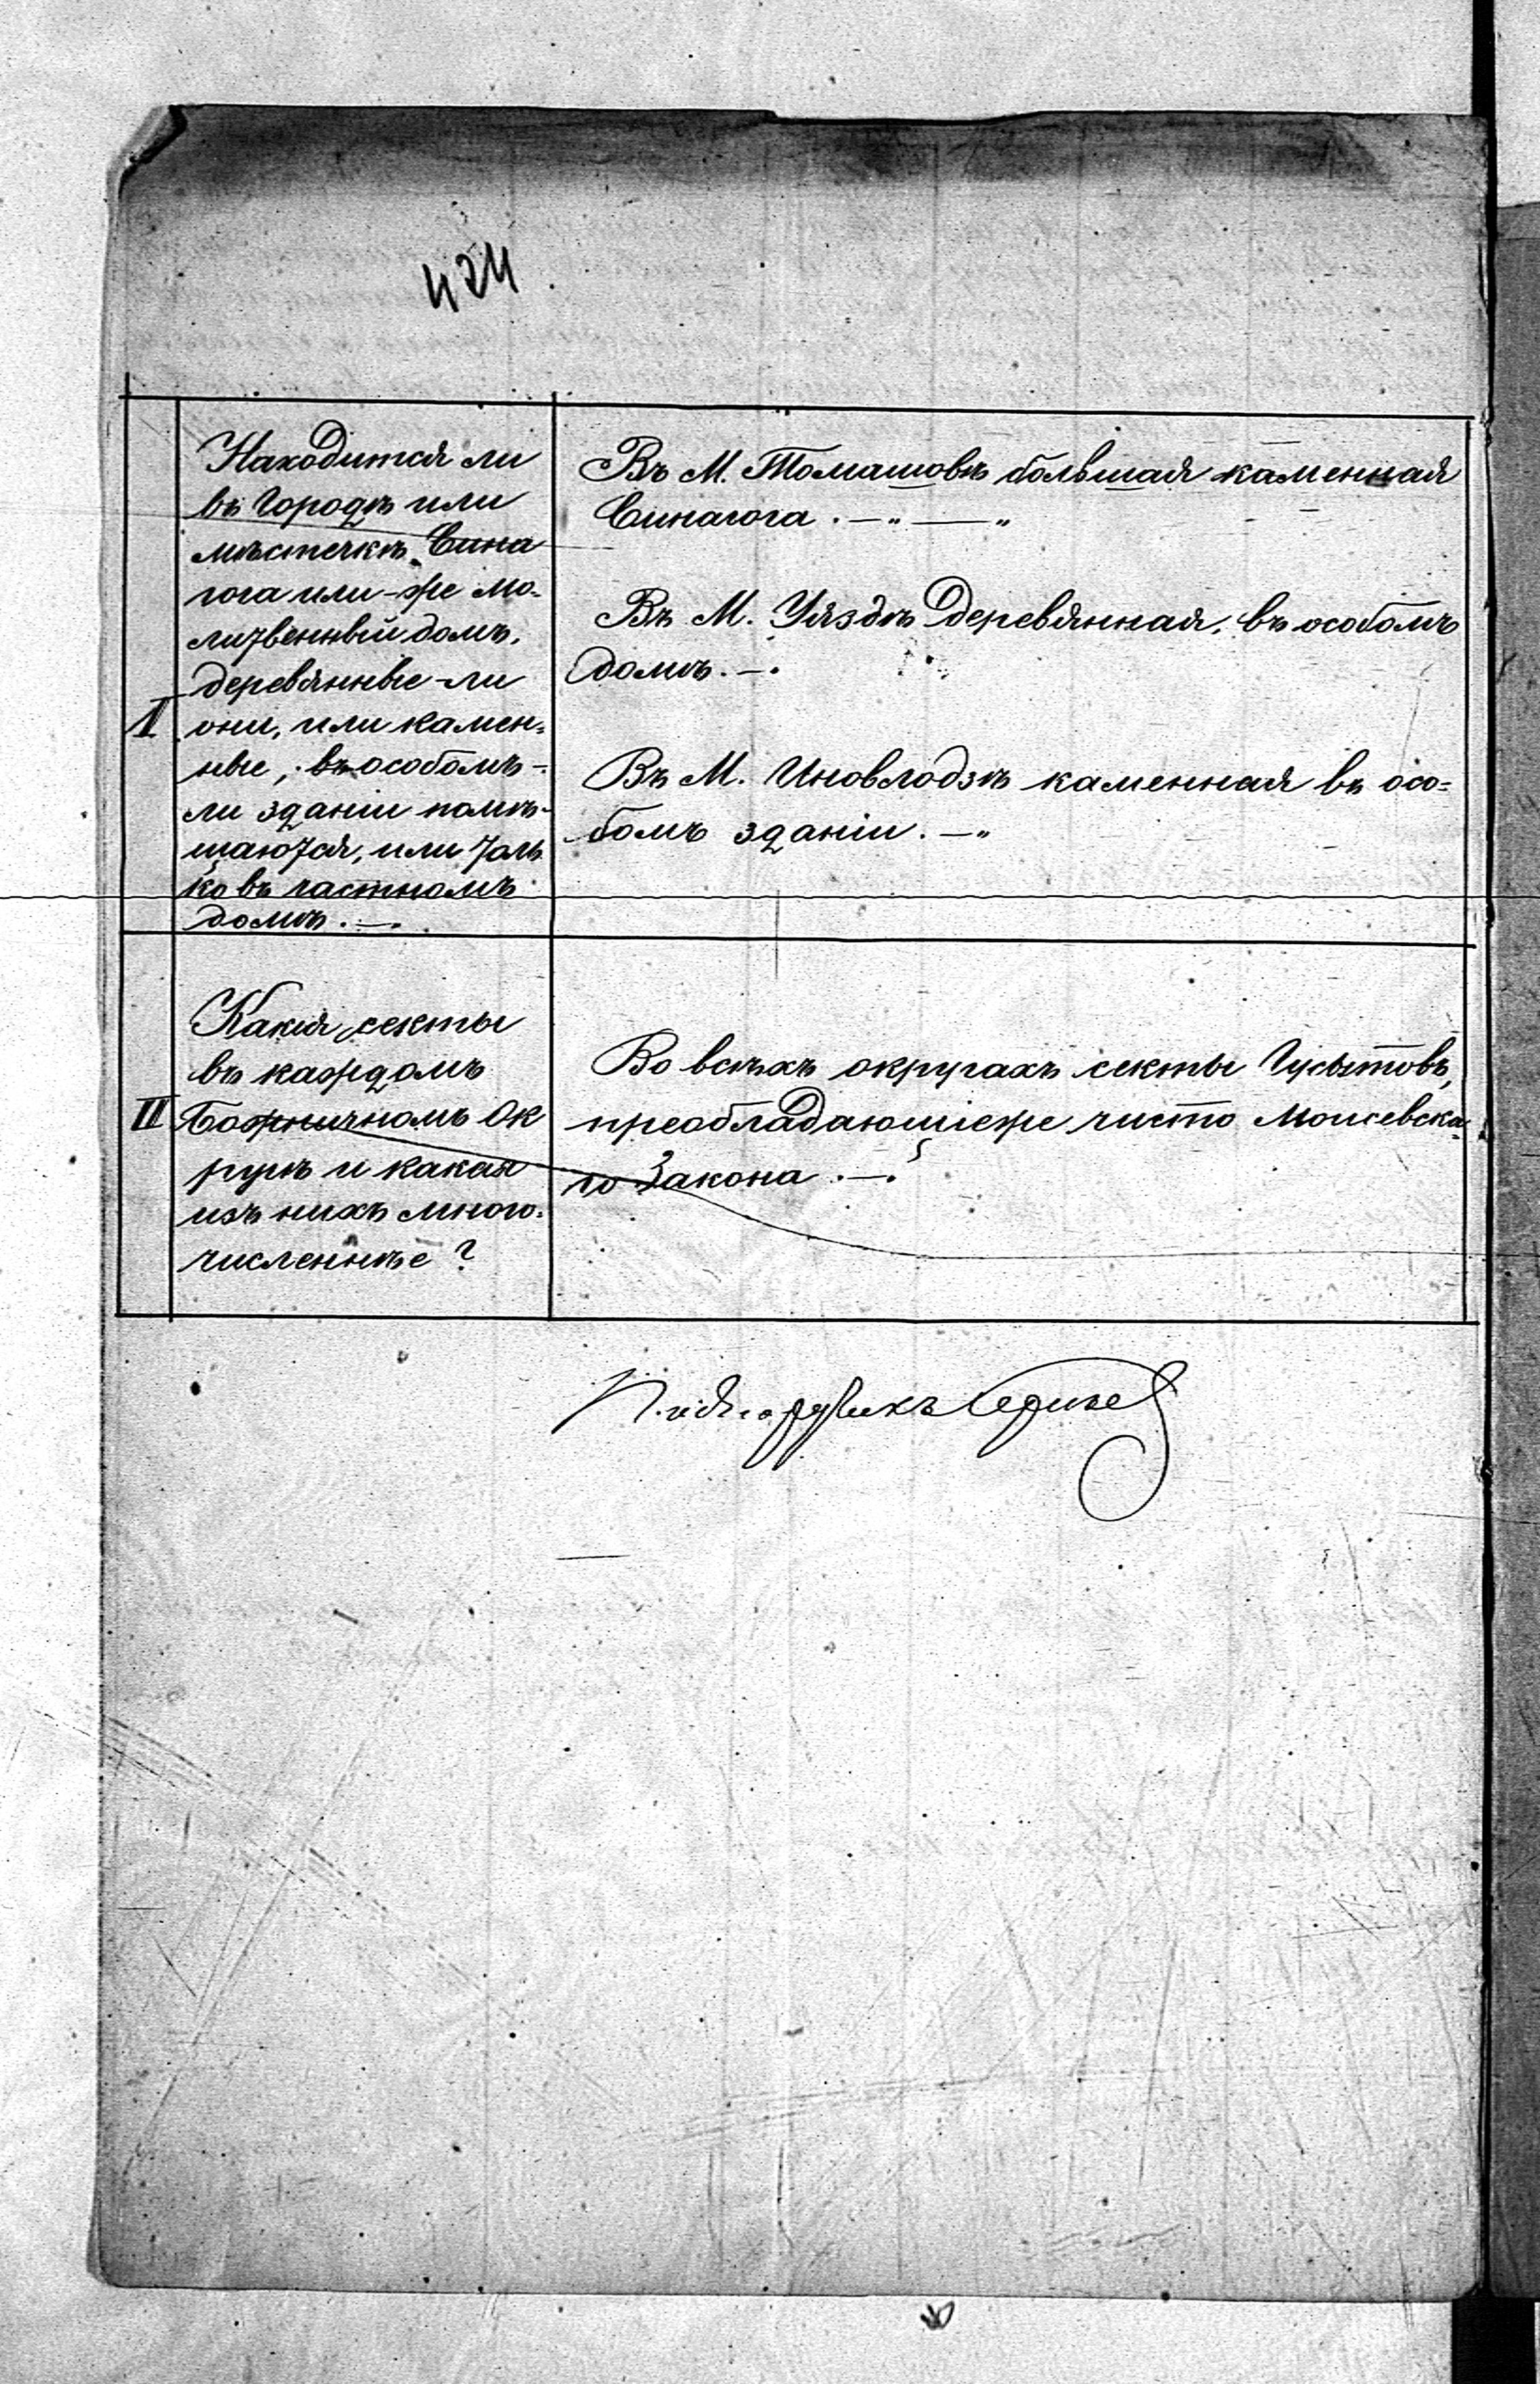 424.
Находится ли
въ городѣ или
мѣстечкѣ Сина
гога или-же мо-
литвенный домъ,
деревянные-ли
I
они, или камен-
ные, въ особомъ-
ли зданіи помѣ-
щаются, или толь
ко въ частномъ
домѣ.—.
Въ М. Томашовѣ большая каменная
Синагога.—„—„
Въ М. Уяздѣ деревянная, въ особомъ
домѣ.—.
Въ М. Иновлодзѣ каменная въ осо-
бомъ зданіи.—„
Какія секты
въ каждомъ
II
Божничномъ Ок
ругѣ и какая
изъ нихъ много-
численнѣе?
Во всѣхъ округахъ секты Гусытовъ,
преобладающіе же чисто Моисевска-
го Закона.—.